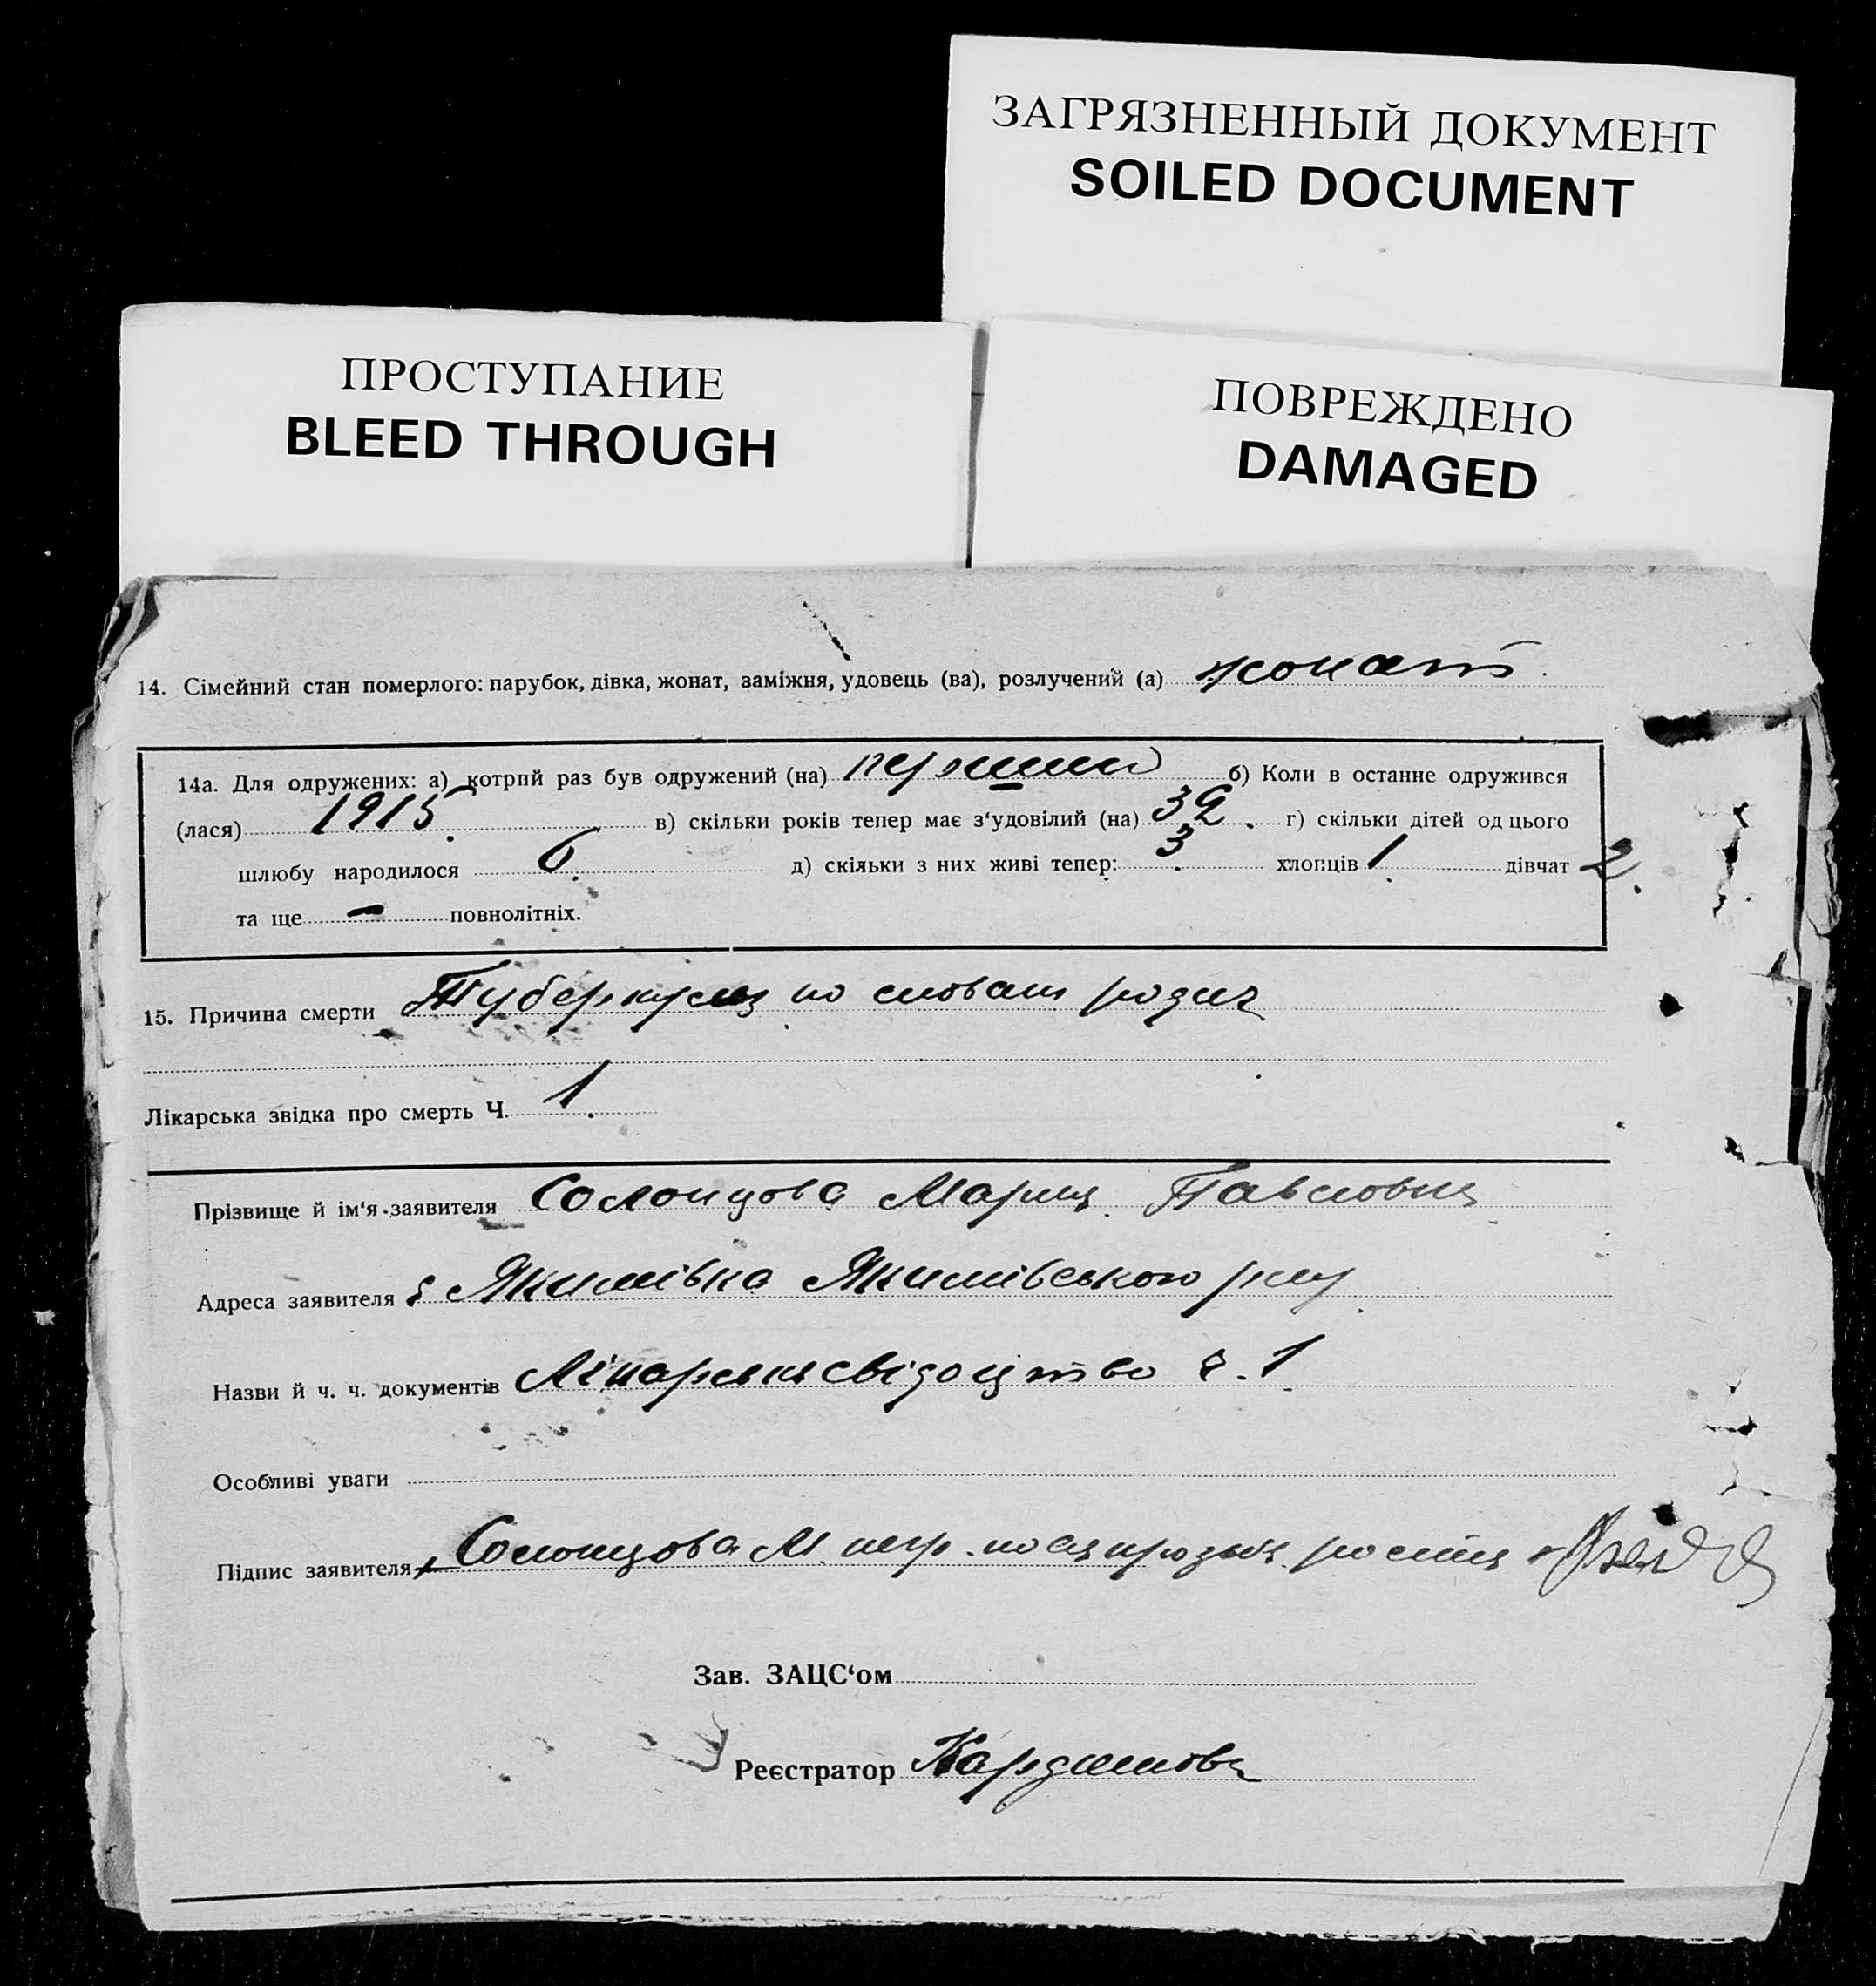 ЗАГРЯЗНЕННЫЙ ДОКУМЕНТ
SOILED DOCUMENT
ПРОСТУПАНИЕ
BLEED THROUGH
ПОВРЕЖДЕНО
DAMAGED
14. Сімейний стан померлого: парубок, дівка, жонат, заміжня, удовець (ва), розлучений (а) жонат.
14а. Для одружених: а) котрий раз був одружений (на) перший б) Коли в останне одружився
(лася) 1915. в) скільки років тепер має з'удовілий (на) 39. г) скільки дітей од цього
шлюбу народилося 6. д) скільки з них живі тепер: 3. хлопців 1 дівчат 2.
та ще — повнолітніх.
15. Причина смерти Туберкулез по словам родич
Лікарська звідка про смерть Ч. 1.
Прізвище й ім'я заявителя Солонцова Мария Павловна
Адреса заявителя с Якимівка Якимівського р-ну
Назви й ч. ч. документів Лікарське свідоцтво ч. 1
Особливі уваги
Підпис заявителя Солонцова М. негр.
Зав. ЗАЦС'ом
Реєстратор Кардашова